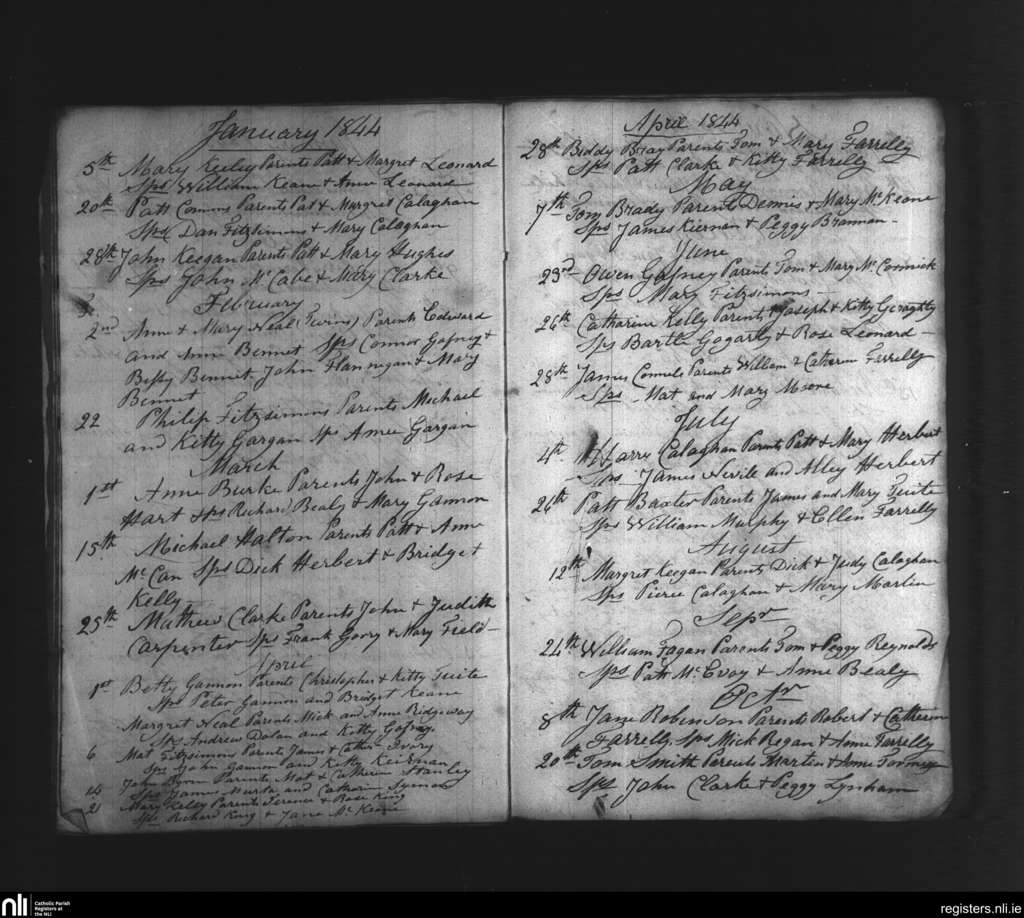 January 1844
5th Mary Keeley Parents Patt & Margret Leonard
Sps William Keane & Anne Leonard
20th Patt Comms Parents Pat & Margret Calaghan
Sps Dan Fitzsimons & Mary Calaghan
28th John Keegan Parents Patt & Mary Hughes
Sps John Mc Cabe & Mary Clarke
February
2nd Anne & Mary Neal (Twins) Parents Edward
and Anne Bennet Sps Connor Gafney &
Bessy Bennet John Flannigan & Mary
Bennet
22 Philip Fitzsimons Parents Michael
and Kitty Gargan sps Amee Gargan
March
1st Anne Burke Parents John & Rose
Hart Sps Richard Bealy & Mary Gannon
15th Michael Halton Parents Patt & Anne
Mc Can Sps Dick Herbert & Bridget
Kelly
25th Mathew Clarke Parents John & Judith
Carpenter Sps Frank Gory & Mary Field
April
1st Betty Gannon Parents Christopher & Kitty Tuite
Sps Peter Gannon and Bridget Keane
Margret Neal Parents Mick and Anne Ridgeway
Sps Andrew Dolan and Kitty Gafney
6 Mat Fitzsimons Parents James & Cathe Ivory
Sps John Gannon and Kitty Keirnan
14 John Byrne Parents Mat & Catherin Stanley
Sps James Murta and Catherin Symon
21 Mary Kelly Parents Terence & Rose King
Sps Richard King & Jane Mc Keane
April 1844
28th Biddy Bray Parents Tom & Mary Farrelly
Sps Patt Clarke & Kitty Farrelly
May
7th Tom Brady Parents Dennis & Mary Mc Keone
Sps James Kiernan & Peggy Brannan
June
23rd Owen Gafney Parents Tom & Mary Mc Cormick
Sps Mary Fitzsimons
26th Catharine Kelly Parents Joseph & Kitty Geraghty
Sps Bartle Gogarty & Rose Leonard
28th James Connels Parents William & Catherin Farrelly
Sps Mat and Mary Moone
July
4th Harry Calaghan Parents Patt & Mary Herbert
Sps James Nevile and Alley Herbert
26th Patt Baxter Parents James and Mary Tuite
Sps William Murphy & Ellen Farrelly
August
12th Margret Keegan Parents Dick & Judy Calaghan
Sps Pierce Calaghan & Mary Martin
Sepr
24th William Fagan Parents Tom & Peggy Reynolds
Sps Patt Mc Evoy & Anne Bealy
Octr
8th Jane Robinson Parents Robert & Catherin
Farrelly Sps Mick Regan & Anne Farrelly
20th Tom Smith Parents Martin & Anne
Sps John Clarke & Peggy Lynham
nli Catholic Parish
Registers at
the NLI
registers.nli.ie